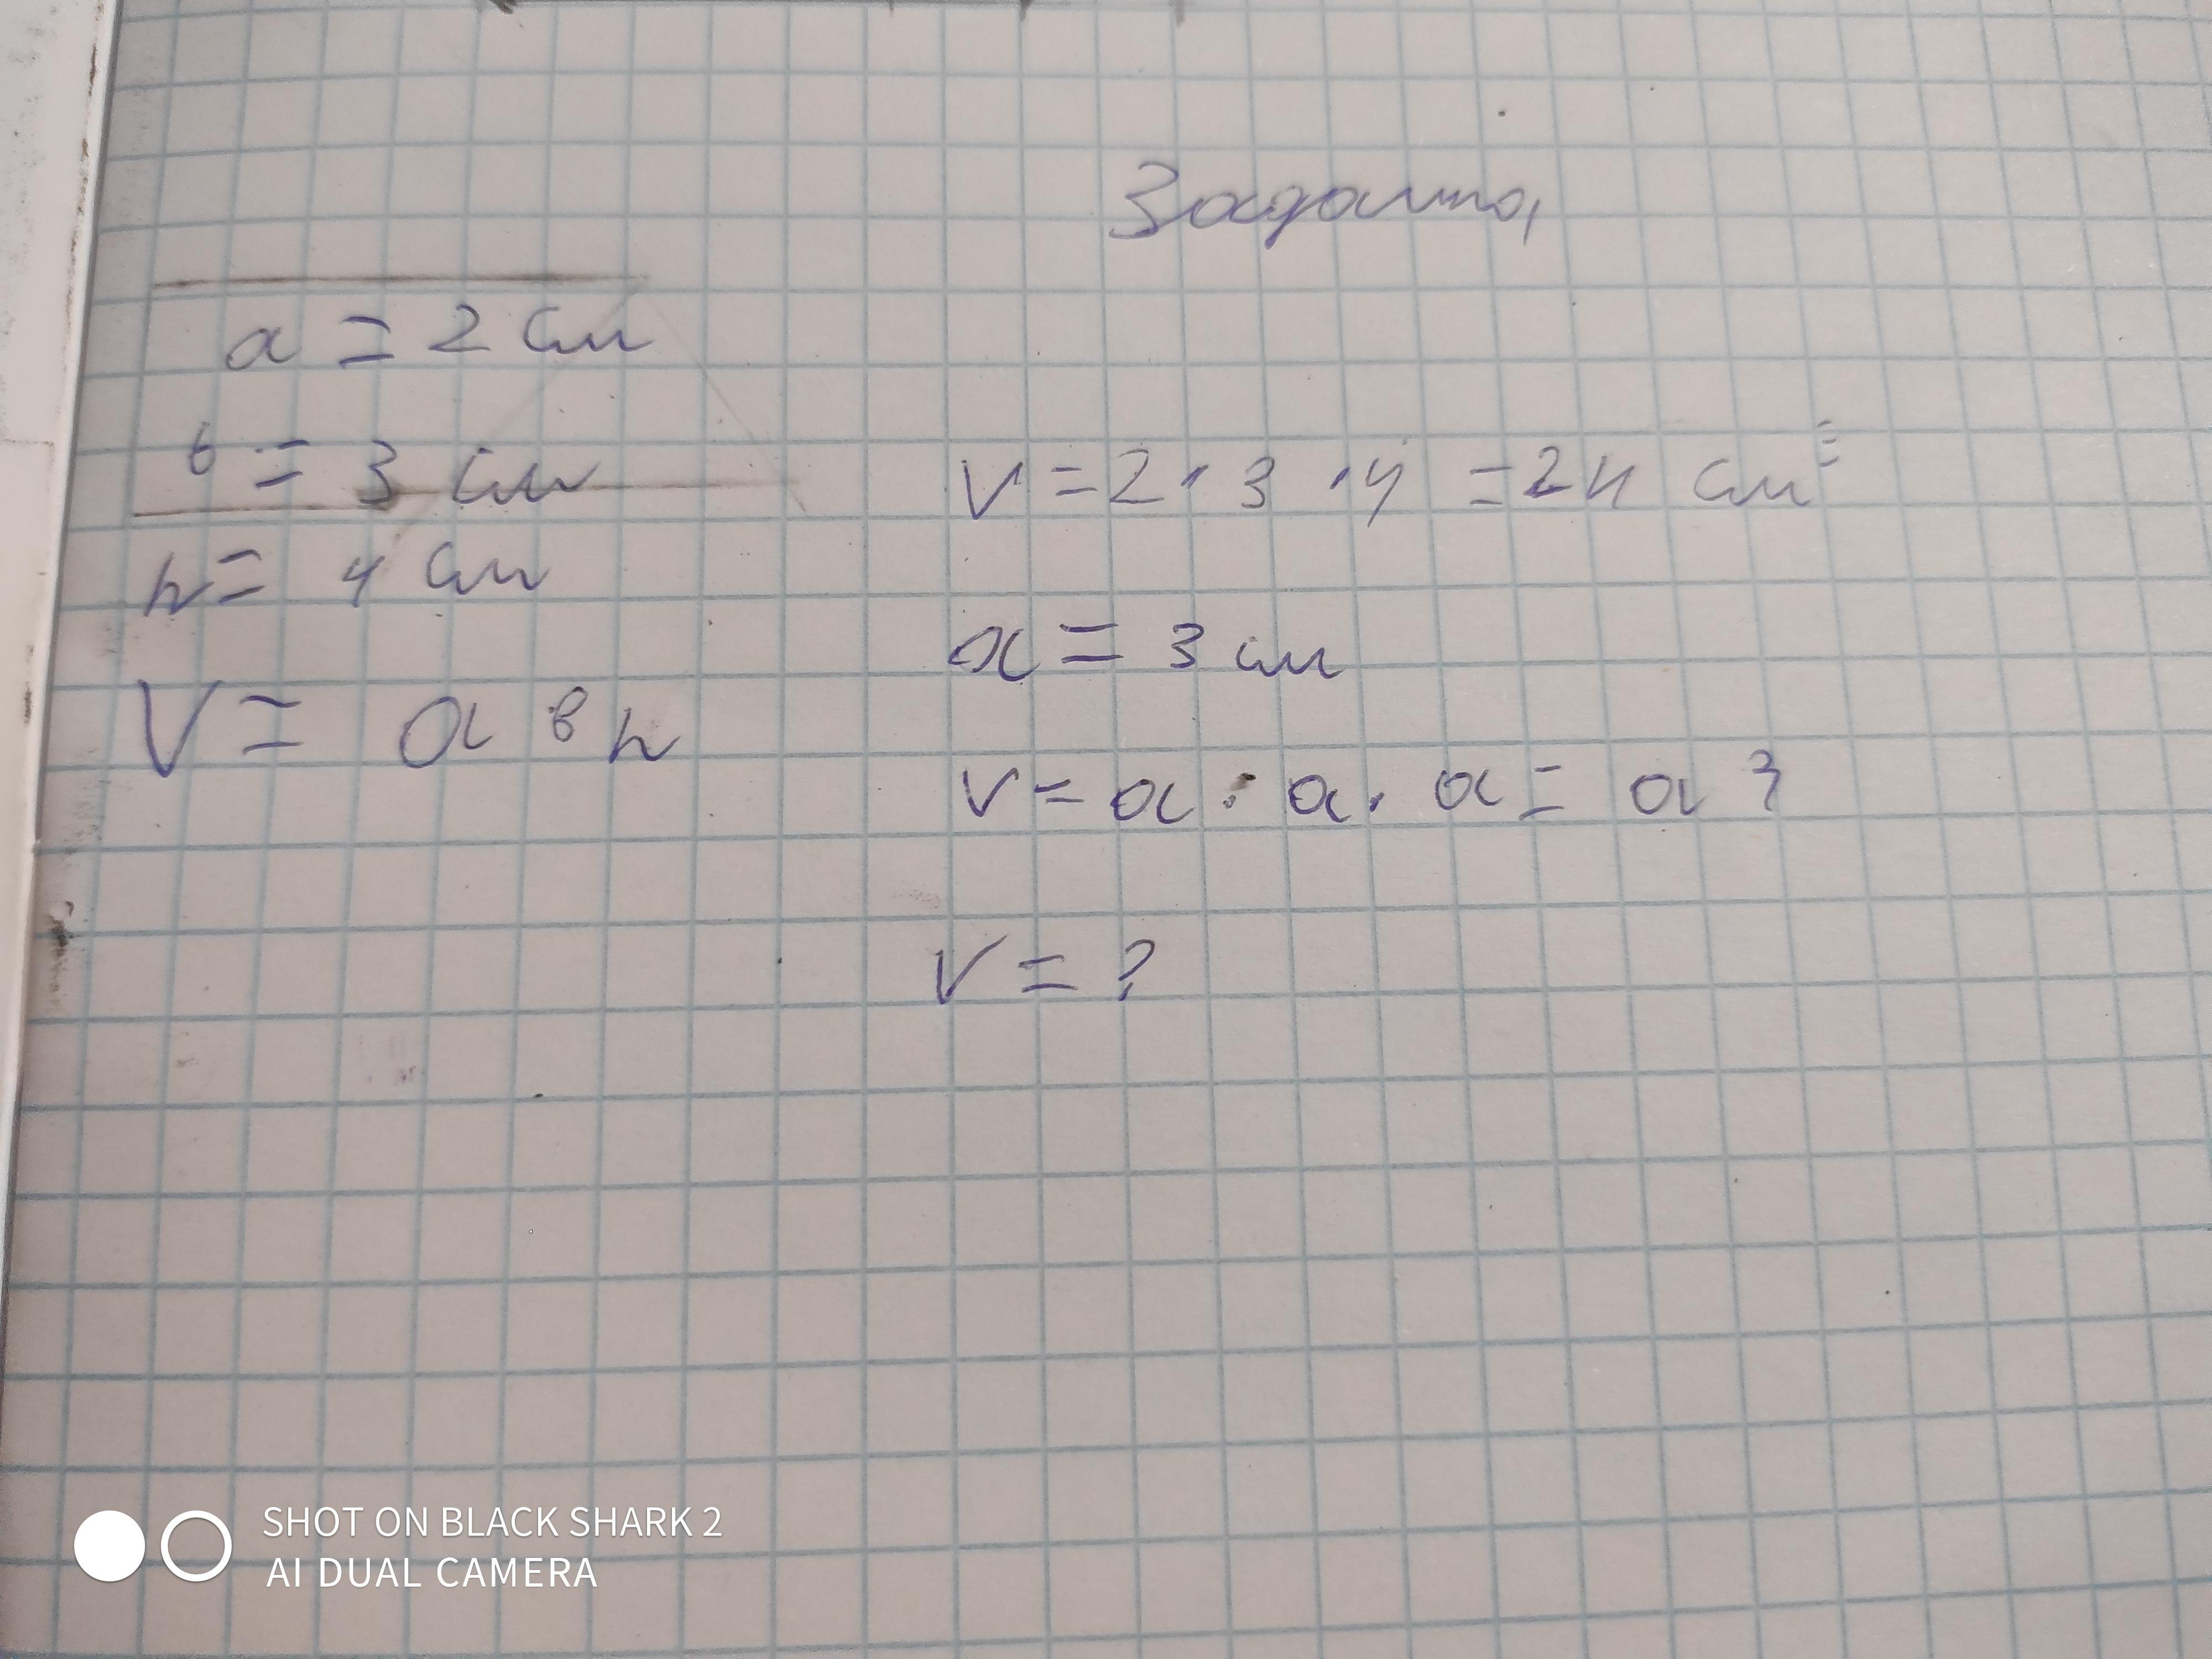 a = 2 см
в = 3 см
h = 4 см
V = a в h
V = 2 · 3 · 4 = 24 см³
a = 3 см
V = a · a · a = a³
V = ?
SHOT ON BLACK SHARK 2
AI DUAL CAMERA